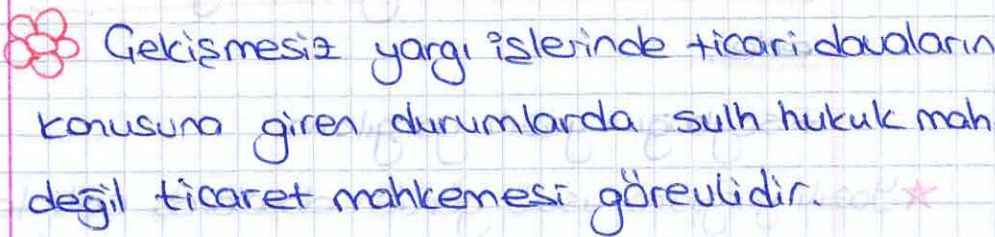 Çekişmesiz yargı işlerinde ticari davaların
konusuna giren durumlarda sulh hukuk mah
değil ticaret mahkemesi görevlidir.